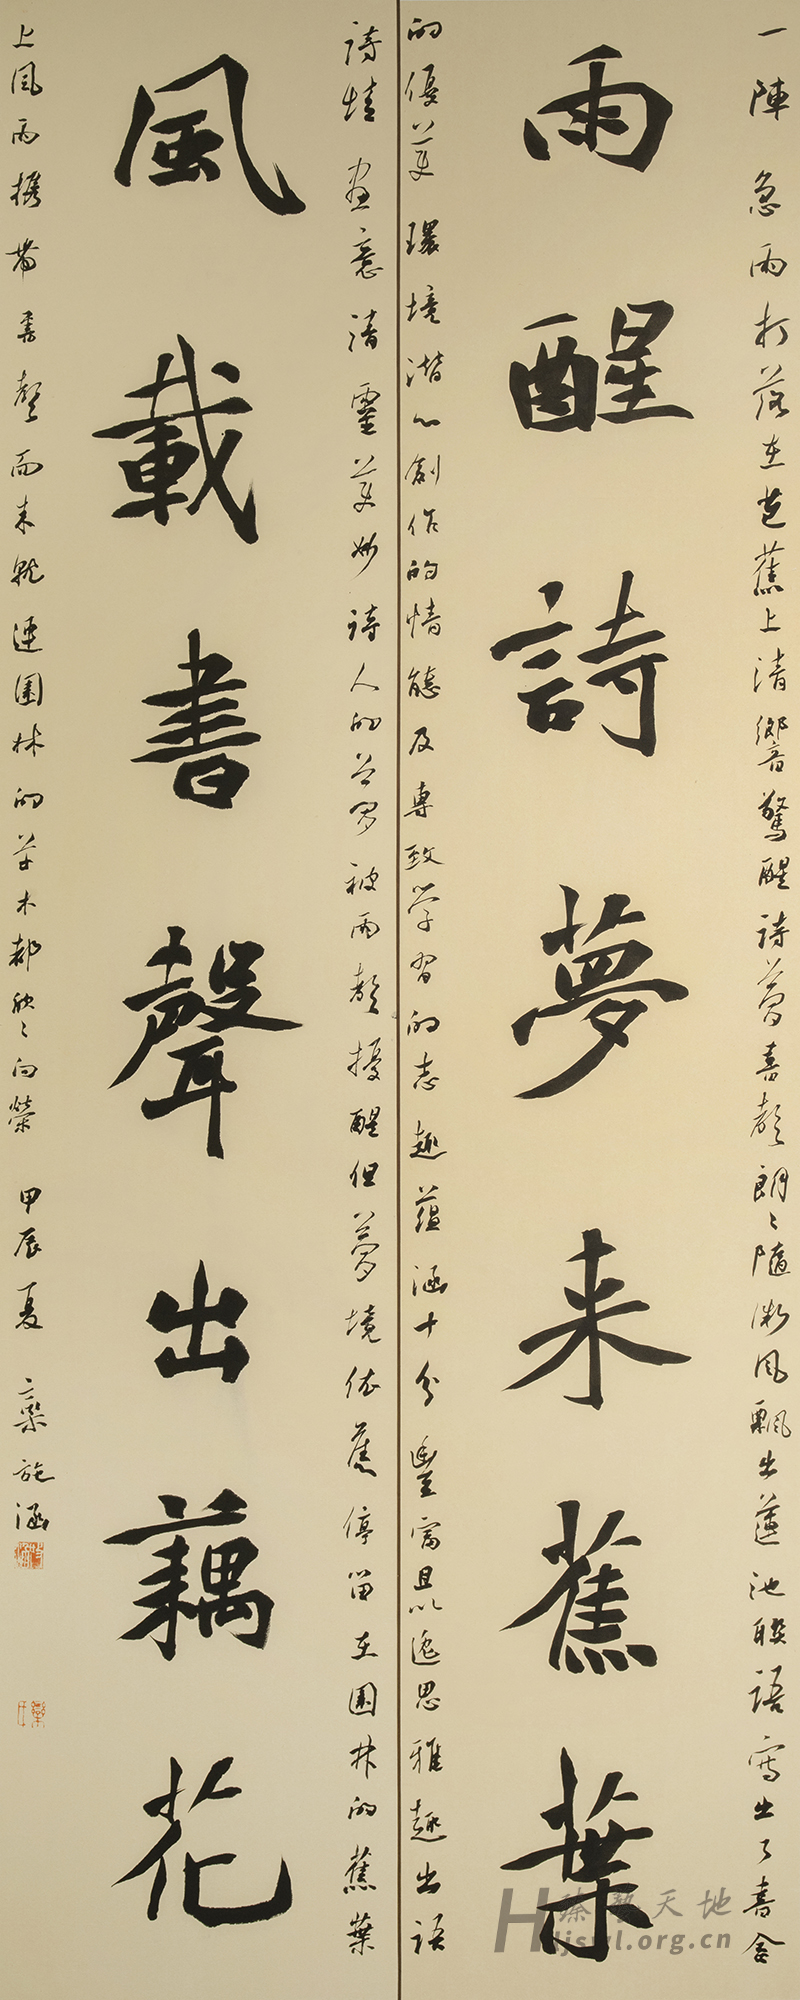 一陣急雨打落在芭蕉上清響驚醒詩夢書聲朗〻隨微风飄出蓮池联語寫出了書舍
雨醒詩夢来蕉葉
的優美環境潜心創作的情態及專致学習的志趣蕴涵十分豐富且以逸思雅趣出語
詩情畫意清靈美妙詩人的美夢被雨聲擾醒但夢境依舊停留在園林的蕉葉
風載書聲出藕花
上风雨携带書聲而来就連園林的草木都欣〻向荣 甲辰夏 欒施涵
臻艺天地
Hljswl.org.cn